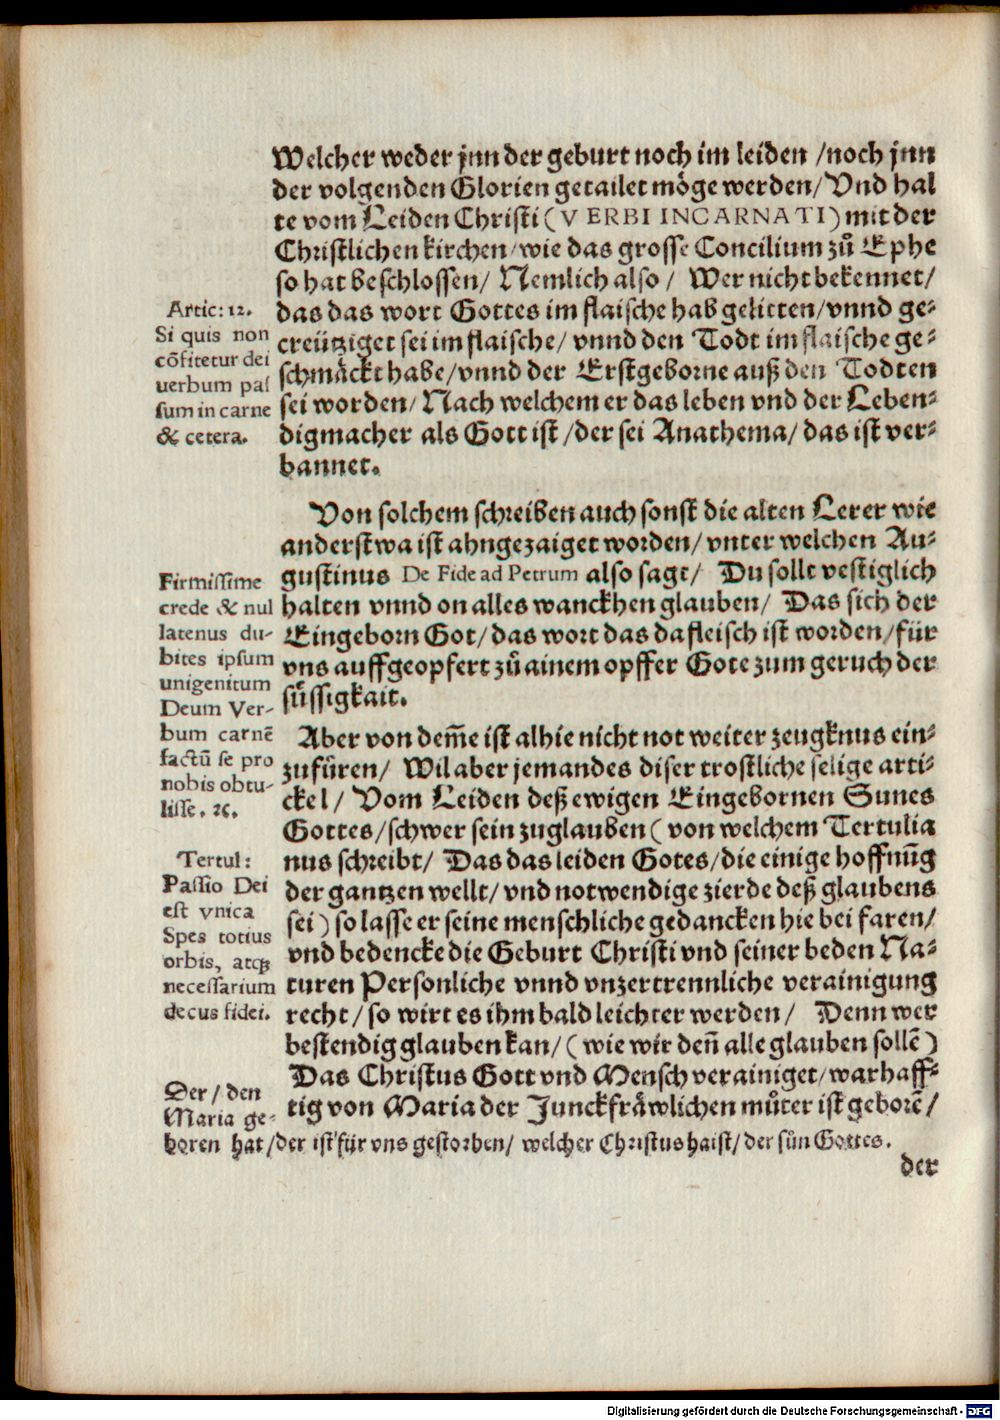 Welcher weder jnn der geburt noch im leiden /noch jnn
der volgenden Glorien getailet möge werden/ Vnd hal
te vom Leiden Christi (VERBI INCARNATI) mit der
Christlichen kirchen/ wie das grosse Concilium zů Ephe
so hat beschlossen/ Nemlich also / Wer nicht bekennet/
das das wort Gottes im flaische hab gelitten/ vnnd ge⸗
creütziget sei im flaische/ vnnd den Todt im flaische ge⸗
schmäckt habe/ vnnd der Erstgeborne auß den Todten
sei worden/ Nach welchem er das leben vnd der Leben⸗
digmacher als Gott ist /der sei Anathema/ das ist ver⸗
bannet.
Artic: 12.
Si quis non
cõfitetur dei
verbum paſ
sum in carne
& cetera.
Von solchem schreiben auch sonst die alten Lerer wie
anderstwa ist ahngezaiget worden/ vnter welchen Au⸗
gustinus De Fide ad Petrum also sagt/ Du sollt vestiglich
halten vnnd on alles wanckhen glauben/ Das sich der
Eingeborn Got/ das wort das da fleisch ist worden/ für
vns auffgeopfert zů ainem opffer Gote zum geruch der
sůssigkait.
Firmissime
crede & nul
latenus du-
bites ipsum
unigenitum
Deum Ver-
bum carnẽ
factũ se pro
nobis obtu-
lisse. ꝛc.
Aber von dem̃e ist alhie nicht not weiter zeugknus ein⸗
zufüren/ Wil aber jemandes diser trostliche selige arti⸗
ckel / Vom Leiden deß ewigen Eingebornen Sunes
Gottes/ schwer sein zuglauben ( von welchem Tertulia
nus schreibt/ Das das leiden Gotes/ die einige hoffnũg
der gantzen wellt/ vnd notwendige zierde deß glaubens
sei ) so lasse er seine menschliche gedancken hie bei faren/
vnd bedencke die Geburt Christi vnd seiner beden Na⸗
turen Personliche vnnd vnzertrennliche verainigung
recht/ so wirt es ihm bald leichter werden/ Denn wer
bestendig glauben kan/ ( wie wir deñ alle glauben sollẽ )
Das Christus Gott vnd Mensch verainiget/ warhaff⸗
tig von Maria der Junckfräwlichen můter ist geborẽ/
Tertul:
Passio Dei
est vnica
Spes totius
orbis, atqꝫ
necessarium
decus fidei.
Der / den
Maria ge⸗
boren hat /der ist für vns gestorben/ welcher Christus haist/ der sůn Gottes.
der
Digitalisierung gefördert durch die Deutsche Forschungsgemeinschaft - DFG